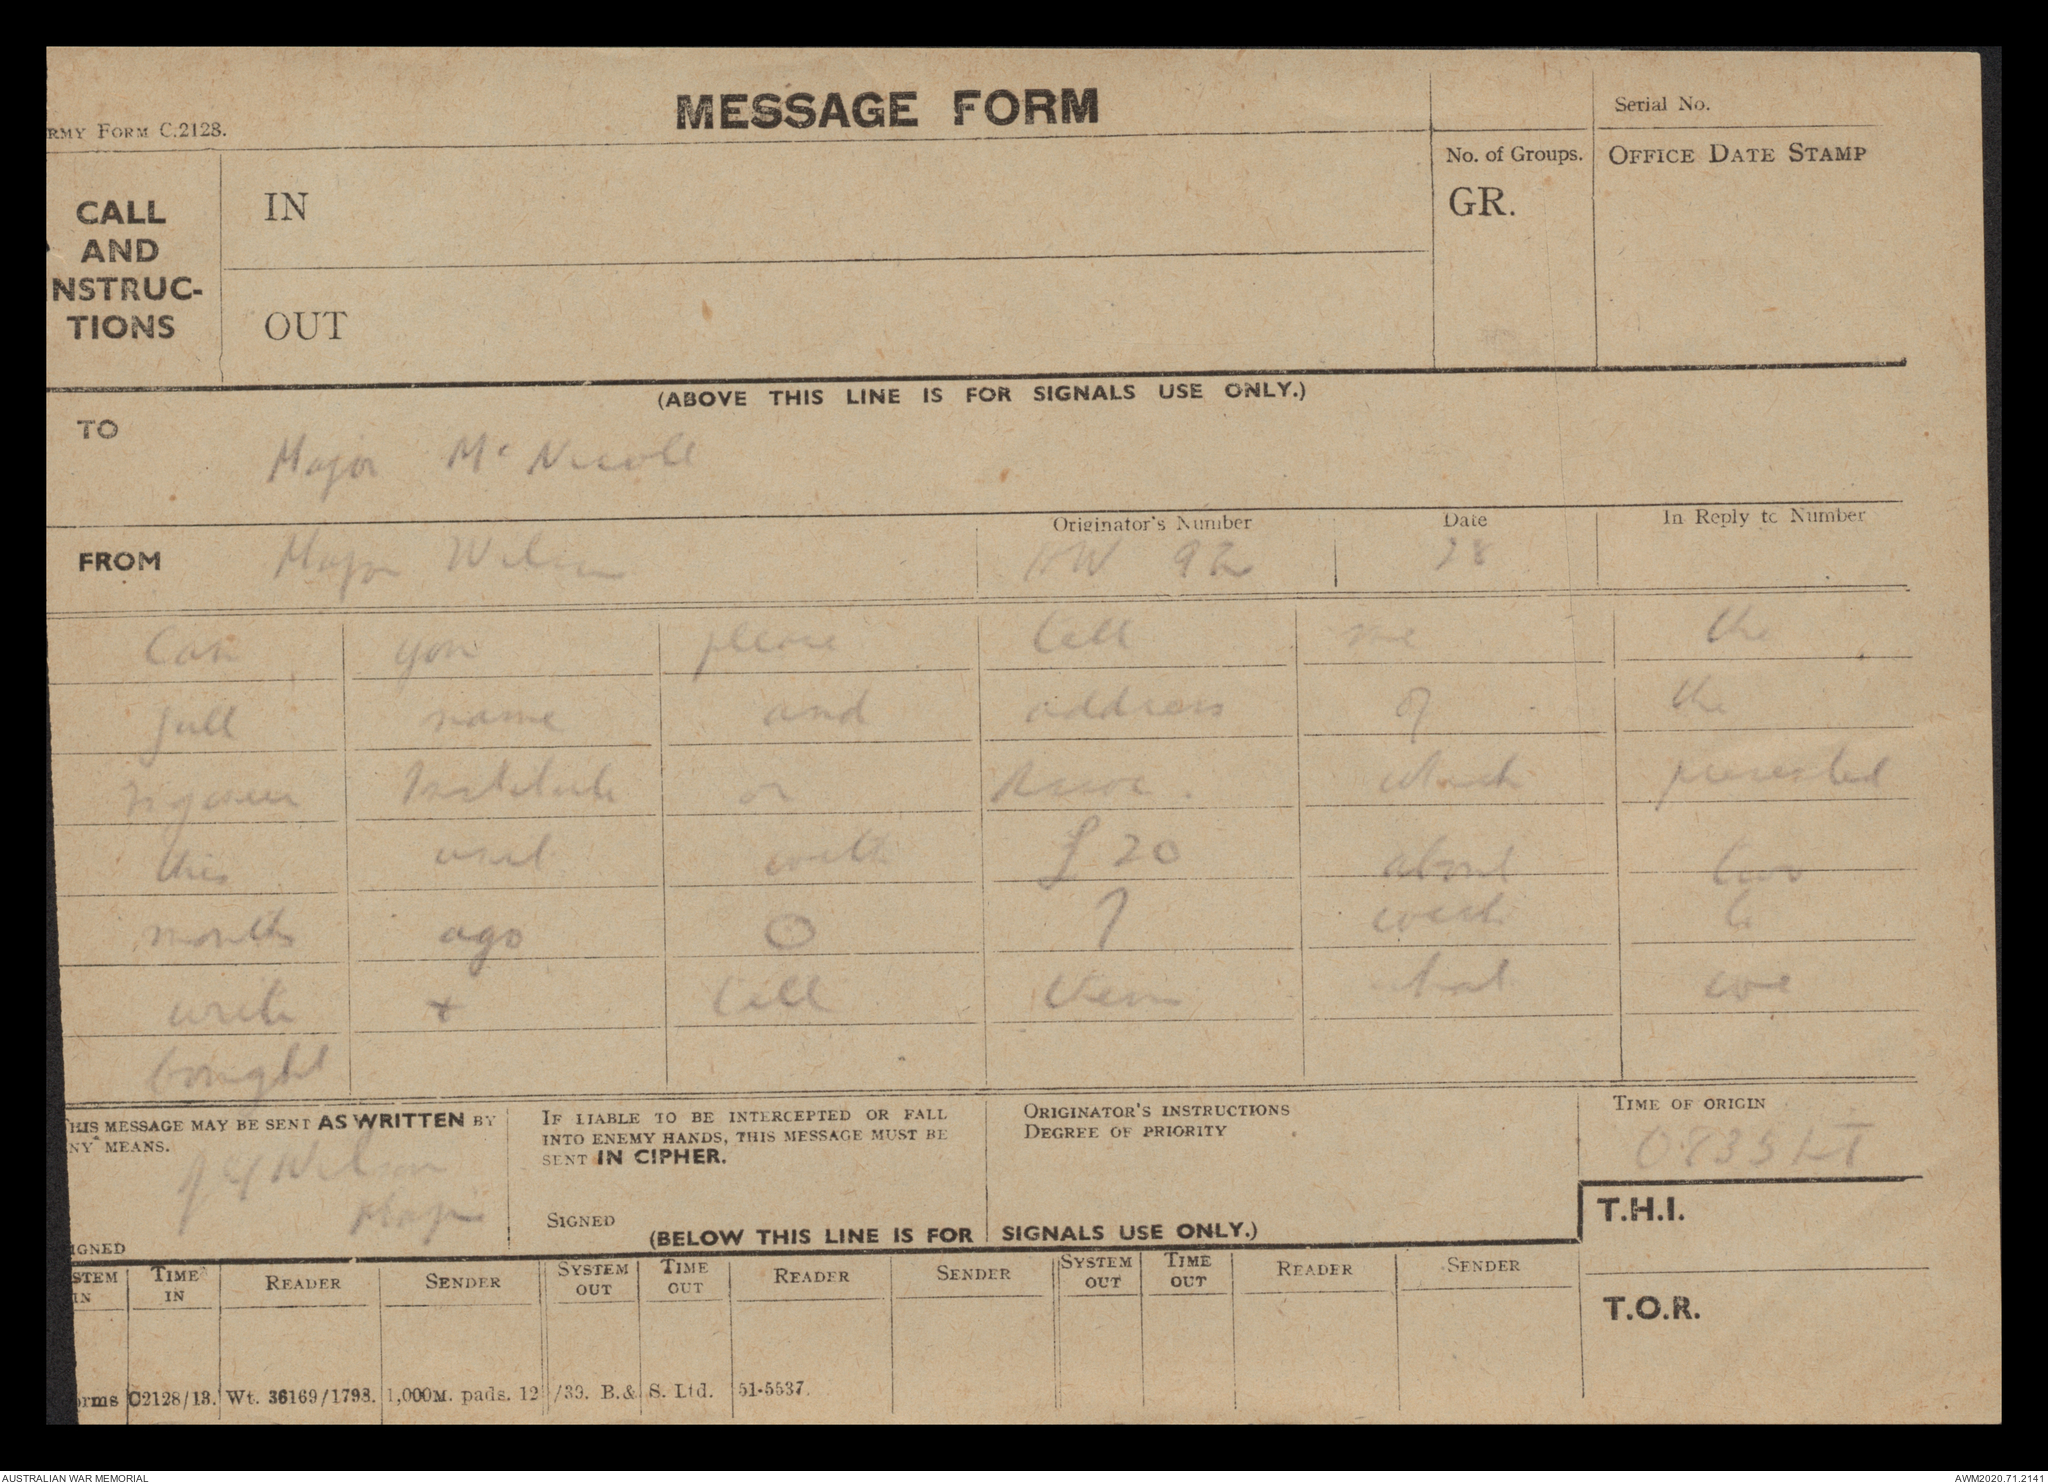 MESSAGE FORM
RMY FORM C.2128.
Serial No.
No. of Groups.
OFFICE DATE STAMP
CALL
AND
NSTRUC-
TIONS
IN
GR.
OUT
(ABOVE THIS LINE IS FOR SIGNALS USE ONLY.)
TO
Major McNicoll
Originator's Number
Date
In Reply to Number
FROM
Major Wilson
92
28
Can you please tell me the
full name and address of the
Institute or Assoc. which presented
this unit with £20 about two
months ago O I wish to
write + tell them what we
bought
THIS MESSAGE MAY BE SENT AS WRITTEN BY
NY MEANS.
Wilson
Major
IGNED
IF LIABLE TO BE INTERCEPTED OR FALL
INTO ENEMY HANDS, THIS MESSAGE MUST BE
SENT IN CIPHER.
SIGNED
ORIGINATOR'S INSTRUCTIONS
DEGREE OF PRIORITY
TIME OF ORIGIN
0835 LT
T.H.I.
(BELOW THIS LINE IS FOR SIGNALS USE ONLY.)
STEM IN TIME IN READER SENDER SYSTEM OUT TIME OUT READER SENDER SYSTEM OUT TIME OUT READER SENDER
T.O.R.
orms C2128/13. Wt. 36169/1798. 1,000M. pads. 12/39. B.& S. Ltd. 51-5537.
AUSTRALIAN WAR MEMORIAL
AWM2020.71.2141